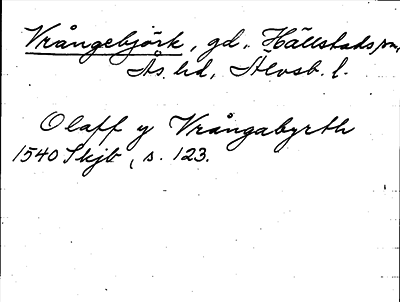 Vrångebjörk, gd., Hällstads sn,
Ås hd, Älvsb. l.
Olaff y Vrångabyrth
1540 Skjb, s. 123.